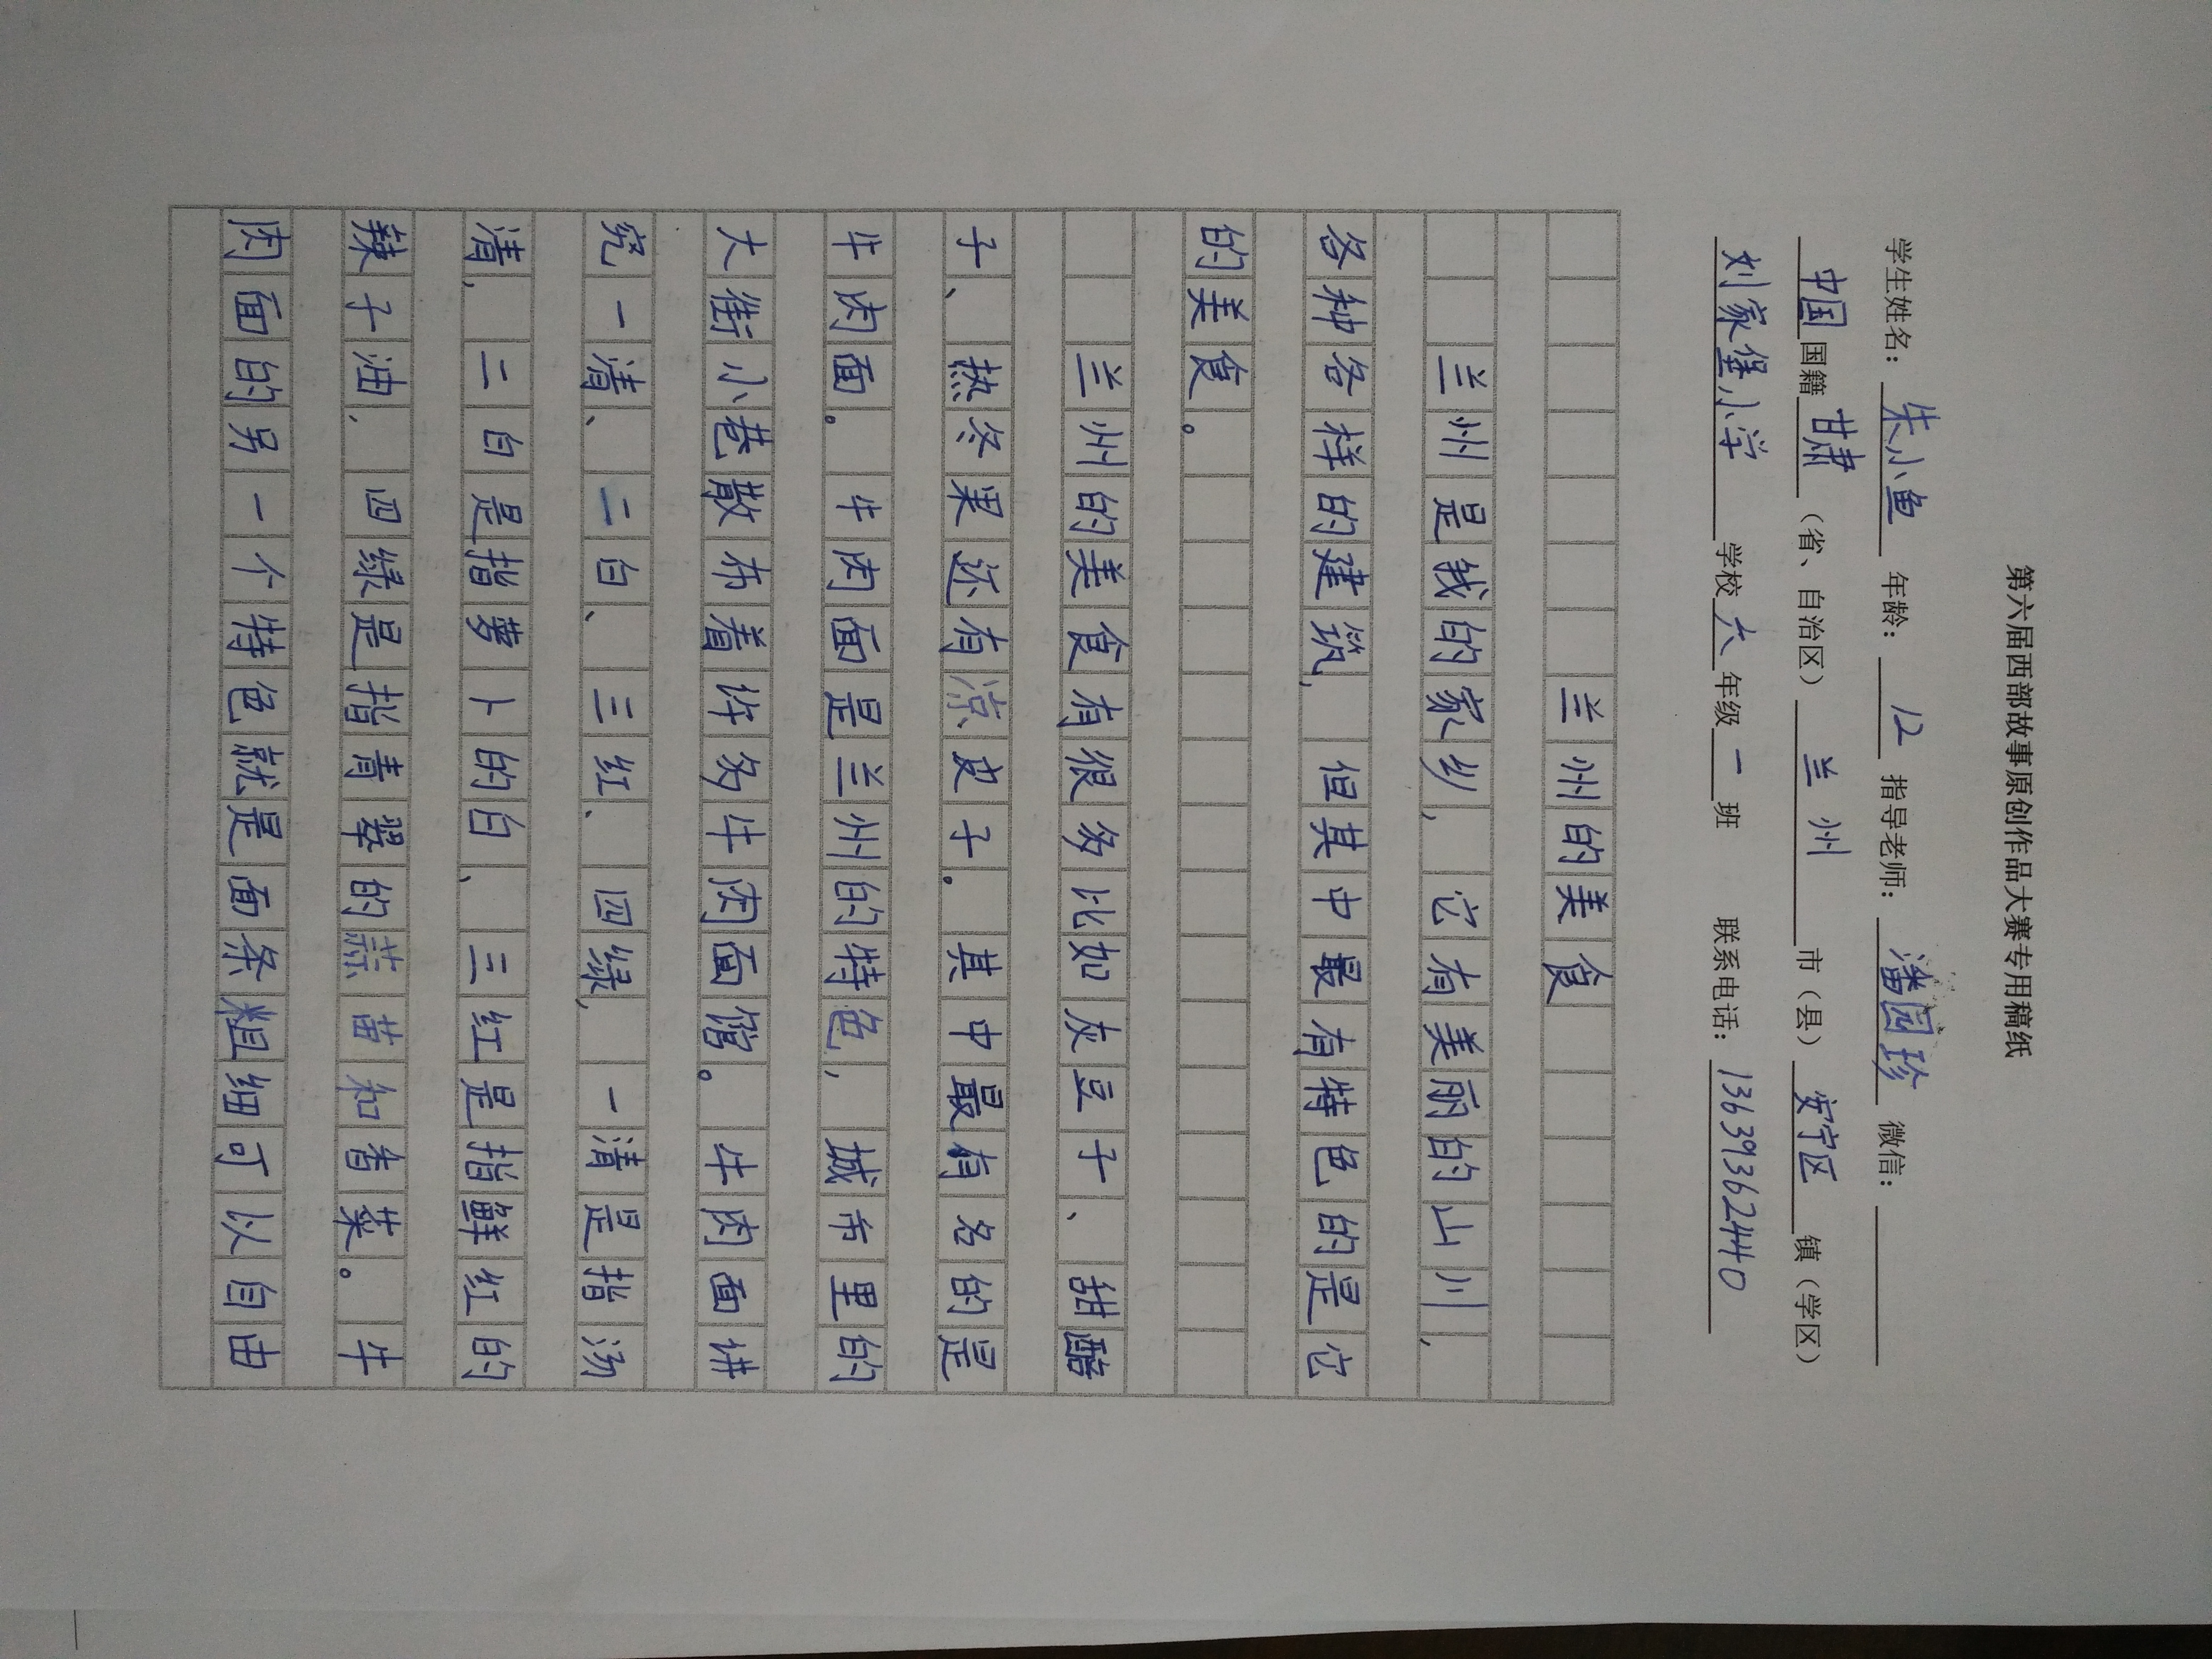 第六届西部故事原创作品大赛专用稿纸
学生姓名：朱小鱼 年龄：12 指导老师：潘园珍 微信：
中国国籍甘肃（省、自治区）兰州市（县）安宁区镇（学区）
刘家堡小学学校六年级一班 联系电话：13639362440
兰州的美食
兰州是我的家乡，它有美丽的山川，
各种各样的建筑，但其中最有特色的是它
的美食。
兰州的美食有很多比如灰豆子、甜醅
子、热冬果还有凉皮子。其中最有名的是
牛肉面。牛肉面是兰州的特色，城市里的
大街小巷散布着许多牛肉面馆。牛肉面讲
究一清、二白、三红、四绿，一清是指汤
清，二白是指萝卜的白、三红是指鲜红的
辣子油，四绿是指青翠的蒜苗和香菜。牛
肉面的另一个特色就是面条粗细可以自由